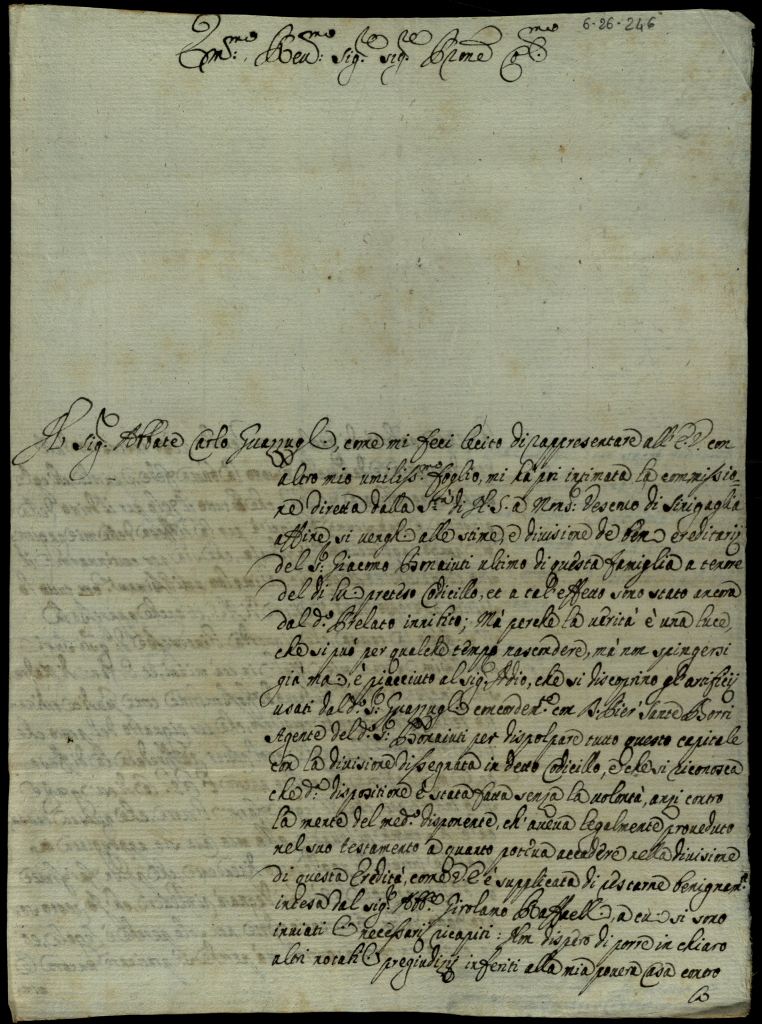 6-26-246
Em.mo Reu.mo Sig.re sig.re Prone Col.mo
Il sig.r Abbate Carlo Guazzugli, come mi feci lecito di rappresentare all' E.V. con
altro mio umiliss.o foglio, mi hà poi intimata la commissio=
ne diretta dalla S.tà di N.S. a Mons.r Vescovo di Sinigaglia
affine, si venghi alle stime, e divisione de beni ereditarij
del S.r Giacomo Bonaiuti ultimo di questa famiglia a tenore
del di lui preteso Codicillo, et a tal' effetto sono stato ancora
dal d.o Prelato invitito; Mà perche la uerità è una luce,
che si può per qualche tempo nascondere, mà non spingersi
già mai, è piacciuto al sig.r Iddio, che si discoprino gl' artificij
usati dal d.o S.r Guazzugli concorden.te con Pier Sante Borri
Agente del d.o S.r Bonaiuti per dispolpare tutto questo capitale
con la diuisione dissegnata in detto Codicillo, e che si riconosca
che d.a dispositione è stata fatta senza la uolontà, anzi contro
la mente del med.o disponente, ch' aueua legalmente proueduto
nel suo testamento a quanto poteua accadere nella diuisione
di questa Eredità, come V.E. è supplicata di restarne benignam.te
intesa dal sig.r Abb.e Girolamo Raffaelli, a cui si sono
inuiati li necessarij ricapiti: Non dispero di porre in chiaro
altri notabili pregiudizij inferiti alla mia pouera casa contro